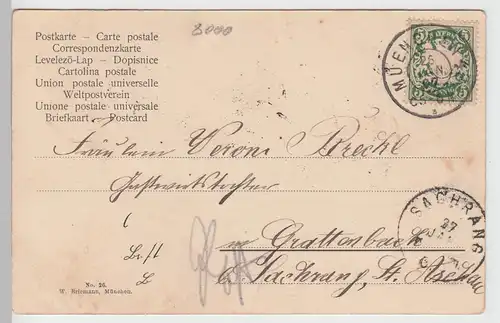 8000
Postkarte – Carte postale
Correspondenzkarte
Levelezö-Lap – Dopisnice
Cartolina postale
Union postale universelle
Weltpostverein
Unione postale universale
Briefkaart – Postcard
BAYERN
5
MUEN
Fräulein Veroni Breckl
Gastwirtstochter
in Grattenbach
b. Sachrang, St. Aschau
SACHRANG
27
No. 26.
W. Briemann, München.